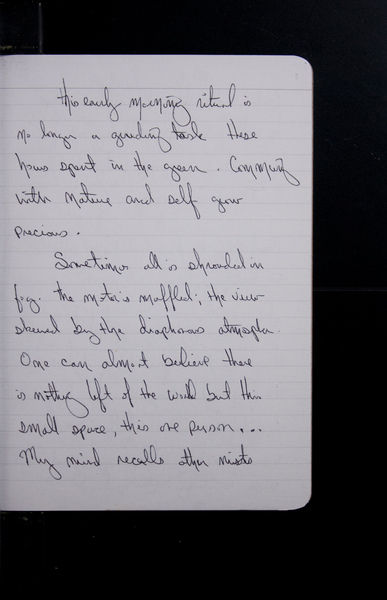 This early morning ritual is
no longer a grueling task these
hours spent in the green. Communing
with nature and self grow
precious.
Sometimes all is shrouded in
fog. The motor is muffled; the view
skewed by the diaphanous
One can almost believe there
is nothing left of the world but this
small space, this one person...
My mind recalls other mists